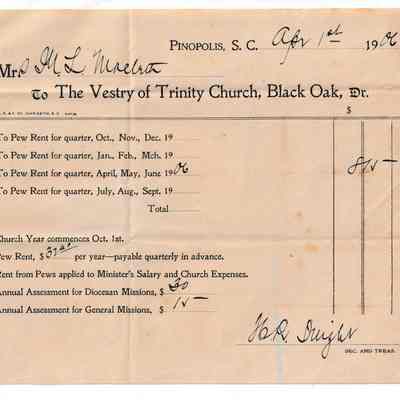 Pinopolis, S. C. Apr 1st 1906
Mrs M L
To The Vestry of Trinity Church, Black Oak, Dr.
$
To Pew Rent for quarter, Oct., Nov., Dec. 19
To Pew Rent for quarter, Jan., Feb., Mch. 19
To Pew Rent for quarter, April, May, June 1906
To Pew Rent for quarter, July, Aug., Sept. 19
Total
Church Year commences Oct. 1st.
Pew Rent, $ per year—payable quarterly in advance.
Rent from Pews applied to Minister's Salary and Church Expenses.
Annual Assessment for Diocesan Missions, $
Annual Assessment for General Missions, $ 15
H R Dwight
SEC. AND TREAS.